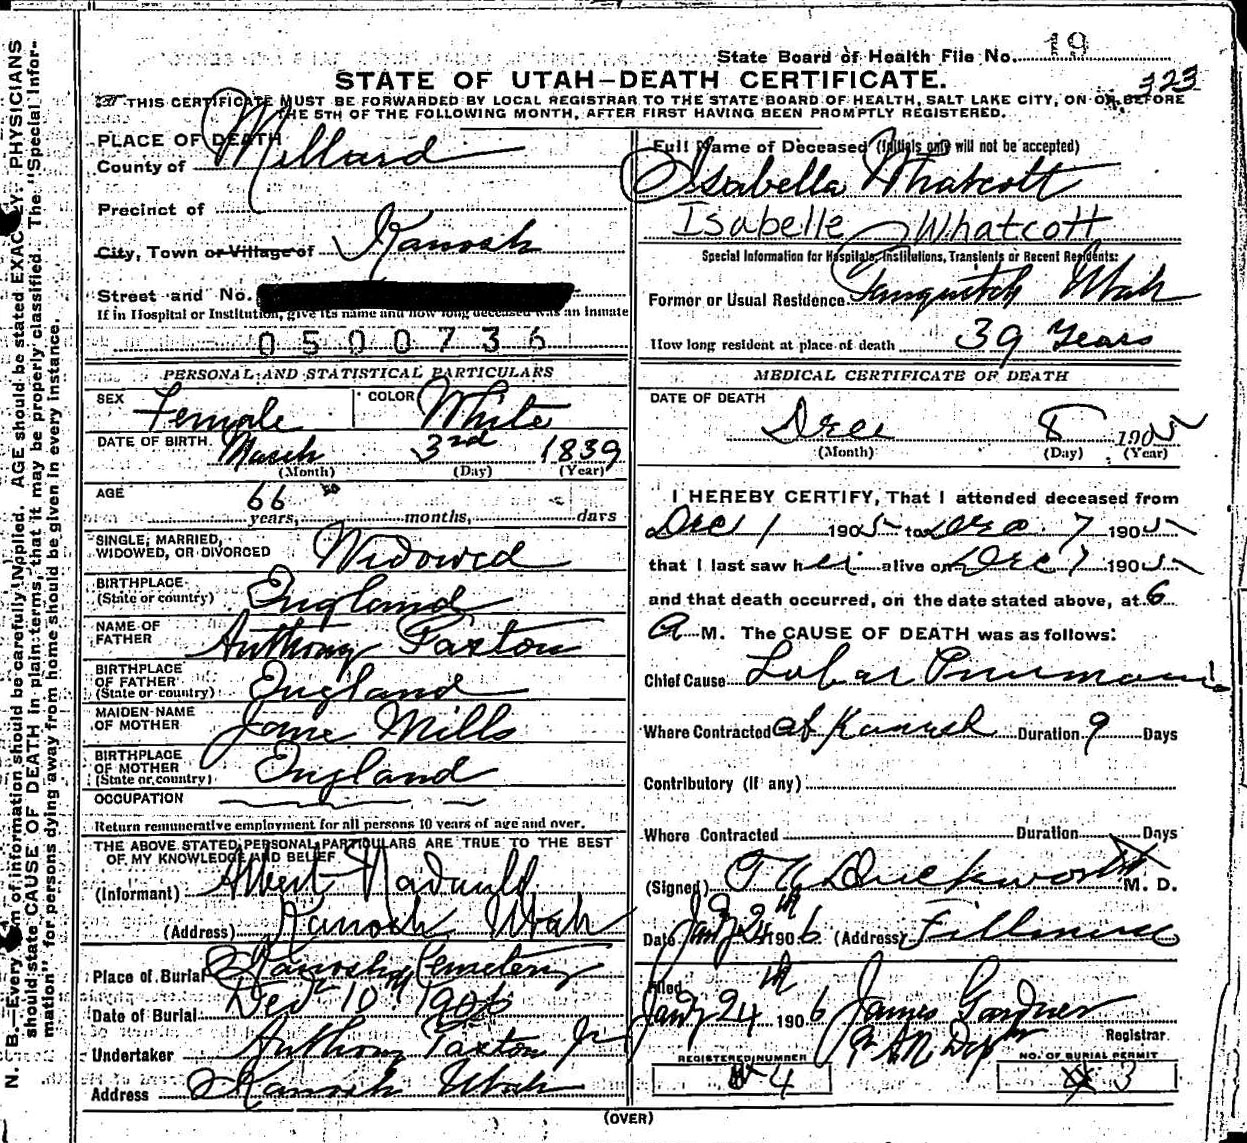 State Board of Health File No. 19
323
STATE OF UTAH—DEATH CERTIFICATE.
THIS CERTIFICATE MUST BE FORWARDED BY LOCAL REGISTRAR TO THE STATE BOARD OF HEALTH, SALT LAKE CITY, ON OR BEFORE
THE 5TH OF THE FOLLOWING MONTH, AFTER FIRST HAVING BEEN PROMPTLY REGISTERED.
PLACE OF DEATH
County of Millard
Precinct of
City, Town or Village of Kanosh
Street and No.
If in Hospital or Institution, give its name and how long deceased was an inmate
0500736
PERSONAL AND STATISTICAL PARTICULARS
SEX Female COLOR White
DATE OF BIRTH. March 3rd 1839
(Month) (Day) (Year)
AGE 66
years, months, days
SINGLE, MARRIED,
WIDOWED, OR DIVORCED Widowed
BIRTHPLACE
(State or country) England
NAME OF
FATHER Anthony Paxton
BIRTHPLACE
OF FATHER
(State or country) England
MAIDEN NAME
OF MOTHER Jane Mills
BIRTHPLACE
OF MOTHER
(State or country) England
OCCUPATION
Return remunerative employment for all persons 10 years of age and over.
THE ABOVE STATED PERSONAL PARTICULARS ARE TRUE TO THE BEST
OF MY KNOWLEDGE AND BELIEF
(Informant) Albert Nadauld
(Address) Kanosh Utah
Place of Burial Kanosh Cemetery
Date of Burial Dec 10th 1905
Undertaker Anthony Paxton Jr
Address Kanosh Utah
Full Name of Deceased (Initials only will not be accepted)
Isabella Whatcott
Isabelle Whatcott
Special Information for Hospitals, Institutions, Transients or Recent Residents:
Former or Usual Residence Panguitch Utah
How long resident at place of death 39 Years
MEDICAL CERTIFICATE OF DEATH
DATE OF DEATH
Dec 8 1905
(Month) (Day) (Year)
I HEREBY CERTIFY, That I attended deceased from
Dec 1 1905 to Dec. 7 1905
that I last saw her alive on Dec 7 1905
and that death occurred, on the date stated above, at 6
A M. The CAUSE OF DEATH was as follows:
Chief Cause Lobar Pneumonia
Where Contracted at Kanosh Duration 9 Days
Contributory (If any)
Where Contracted Duration Days
(Signed) Duckworth M. D.
Date Jany 24th 1906 (Address) Fillmore
Filed
Jany 24th 1906 James Gardner
Registrar
REGISTERED NUMBER
4
NO. OF BURIAL PERMIT
3
(OVER)
N. B.—Every item of information should be carefully supplied. AGE should be stated EXACTLY. PHYSICIANS
should state CAUSE OF DEATH in plain terms, that it may be properly classified. The "Special Infor-
mation" for persons dying away from home should be given in every instance.